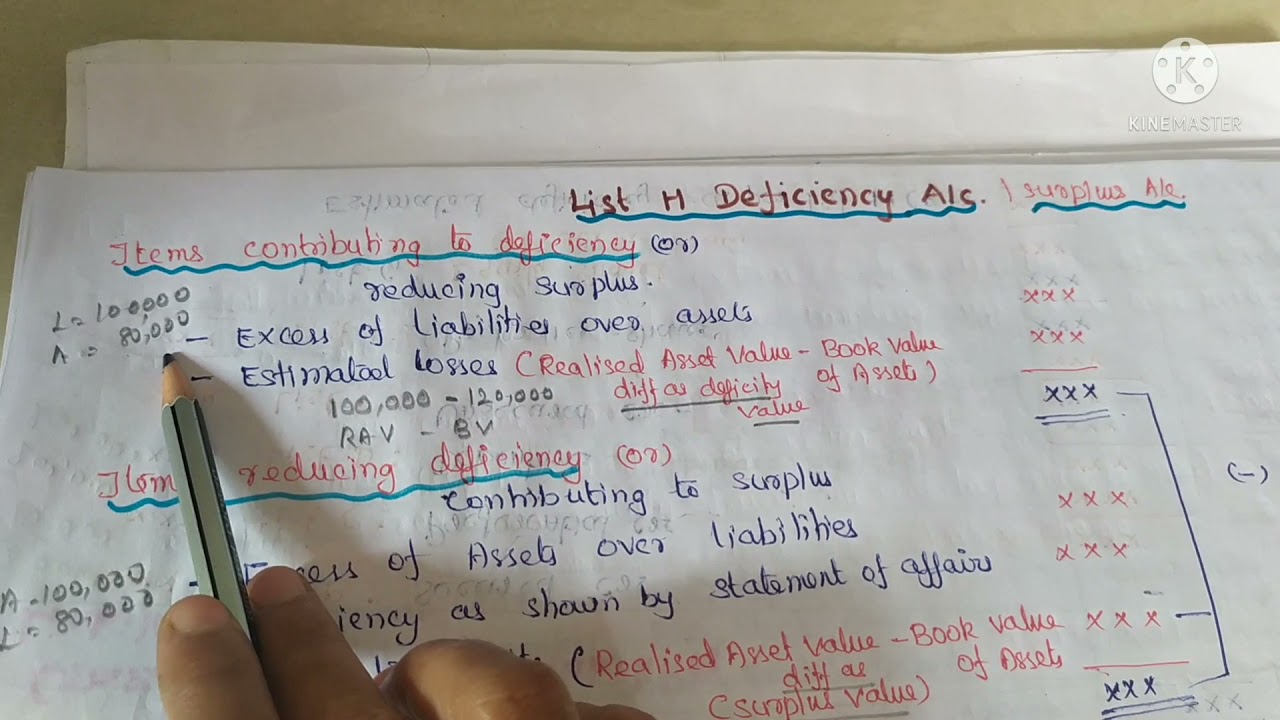 K
KINEMASTER
List H Deficiency A/c. / surplus A/c.
Items contributing to deficiency (or)
reducing surplus.
L = 100000
A = 80,000
- Excess of liabilities over assets xxx
- Estimated losses (Realised Asset Value - Book value of Assets) xxx
diff as deficity value
xxx
100,000 - 120,000
RAV - BV
reducing deficiency (or)
contributing to surplus
(-)
A - 100,000
L = 80,000
of Assets over liabilities xxx
as shown by statement of affair xxx
(Realised Asset Value - Book value of Assets xxx
diff as
(surplus value)
xxx